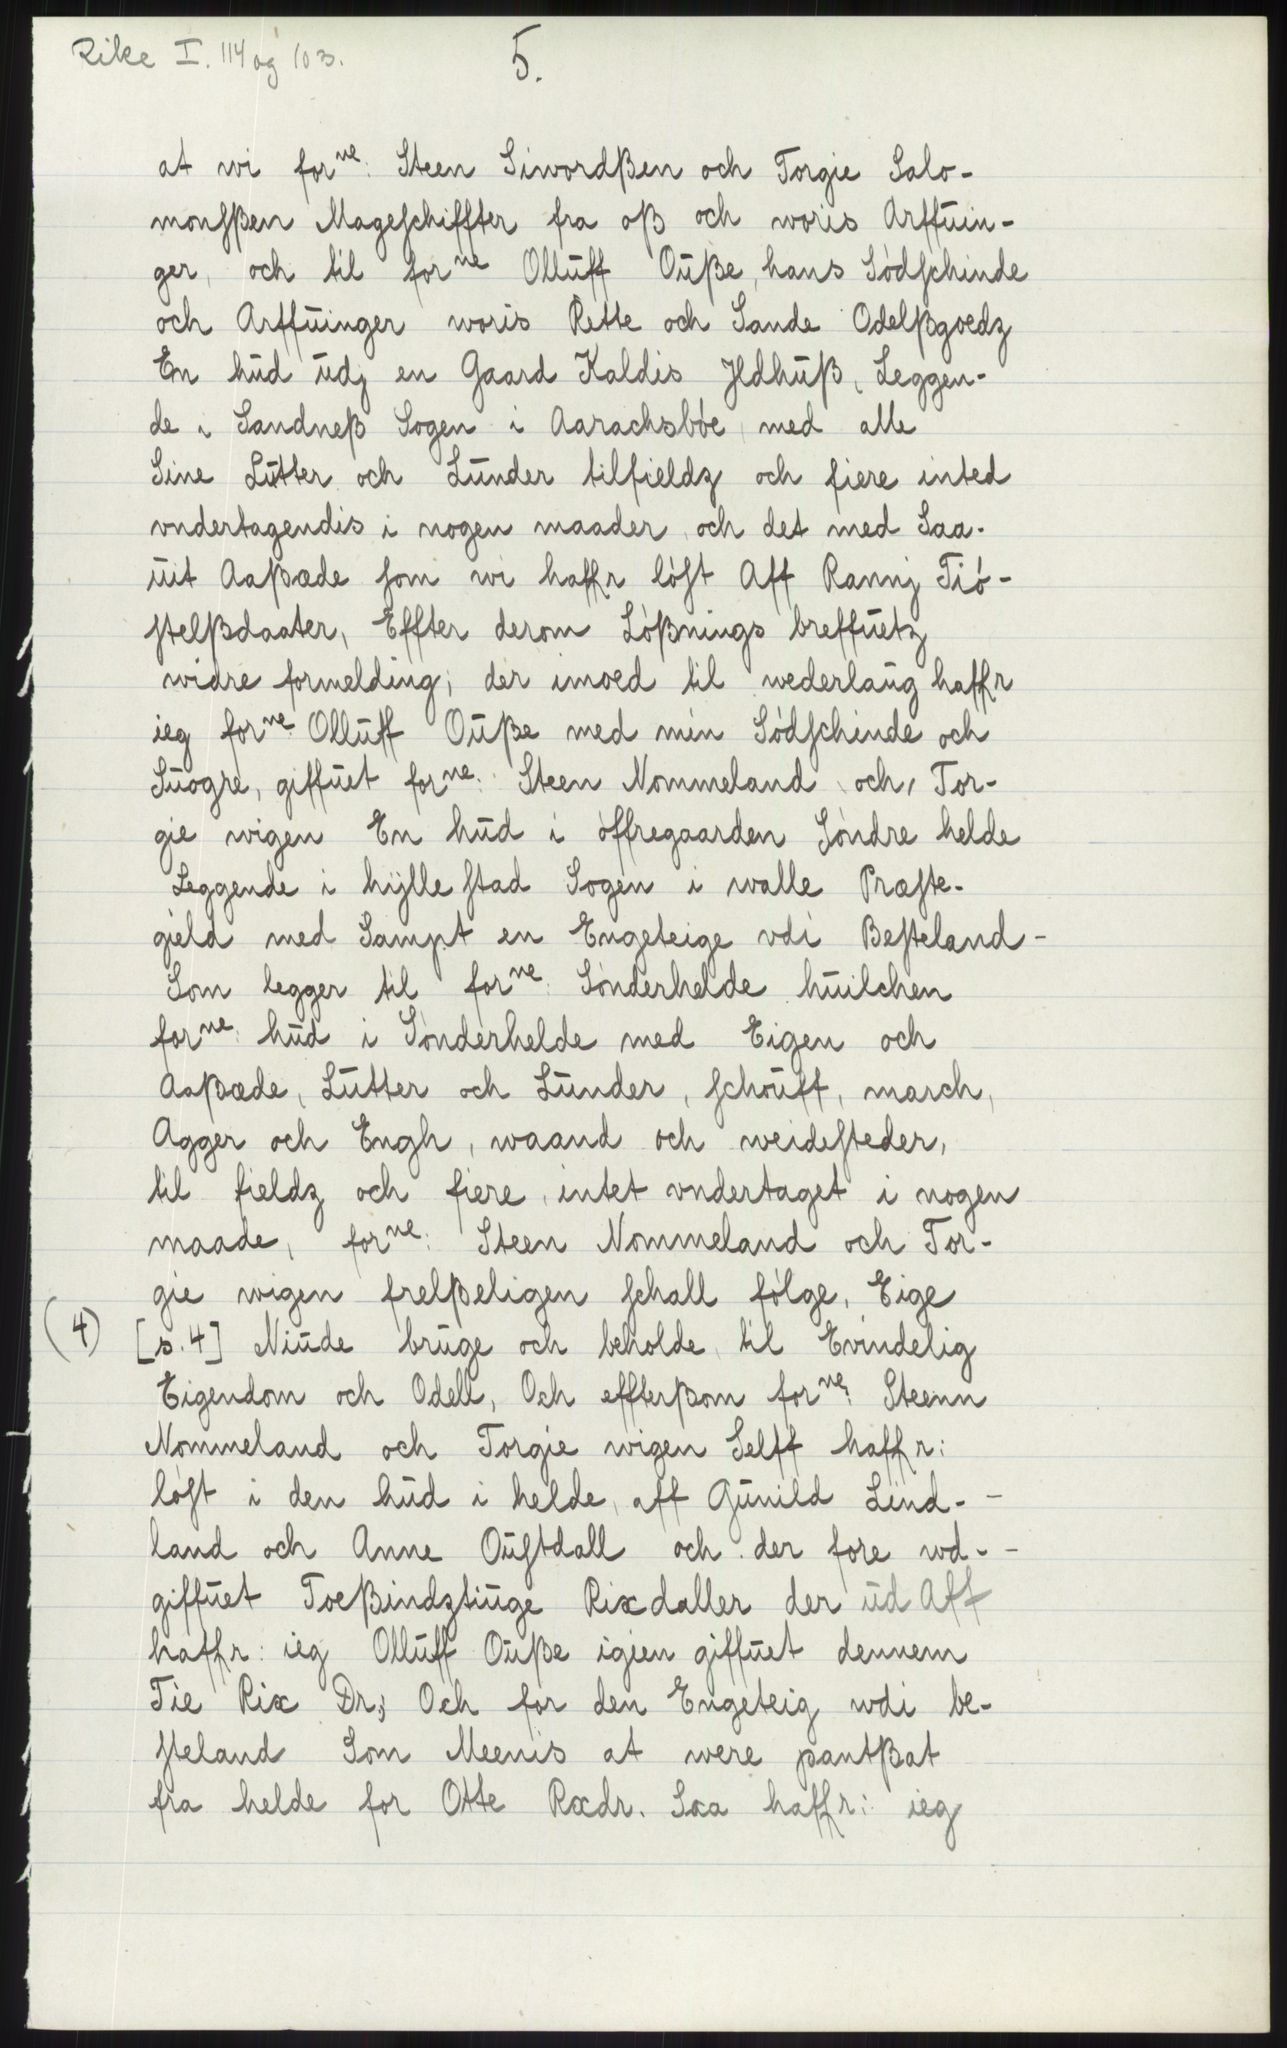 Rike I. 114 og 103.
5.
at wi forne: Steen Siwordßen och Torgie Salo-
monsßen Mageschiffter fra oß och woris Arffuin-
ger, och til forne Olluff Ouße, hans Södschinde
och Arffuinger woris Rette och Sande Odelßgoedz
En hud udj en Gaard Kaldis Jldhuß, Leggen-
de i Sandneß Sogen i Aarachsböe med alle
Sine Lutter och Lunder tilfieldz och fiere inted
vndertagendis i nogen maader, och det med Saa-
uit Aaßæde som wi haffr löst Aff Rannj Tiö-
stelßdaater, Effter derom Lößnings breffuetz
widre formelding; der imoed til wederlaug haffr
ieg forne Olluff Ouße med min Södschinde och
Suogre, giffuet forne: Steen Nommeland och, Tor-
gie wigen En hud i öffregaarden Söndre helde
Leggende i hylle stad Sogen i walle Præste-
gield med Sampt en Engeteige vdi Besteland-
Som legger til forne: Sönderhelde huilchen
forne: hud i Sönderhelde med Eigen och
Aaßæde, Lutter och Lunder, schouff, march,
Agger och Engh, waand och weidesteder,
til fieldz och fiere, intet vndertaget i nogen
maade, forne: Steen Nommeland och Tor-
gie wigen frelßeligen schall fölge, Eige
(4) [s. 4] Niude bruge och beholde til Evindelig
Eigendom och Odell, Och effterßom forne: Steenn
Nommeland och Torgie wigen Selff haffr:
löst i den hud i helde, aff Gunild Lind-
land och Anne Oustdall och der fore wd-
giffuet Toeßindztiuge Rixdaller der ud Aff
haffr: ieg Olluff Ouße igien giffuet dennem
Tie Rix Dr; Och for den Engeteig wdi be-
steland Som Meenis at were pantßat
fra helde for Otte Rxdr. Saa haffr: ieg